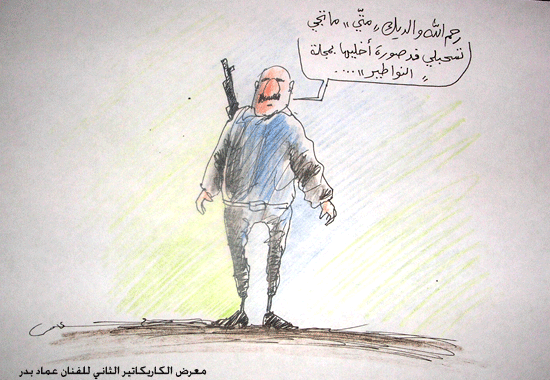 رحم الله والديك "متّي" ما تجي
تسحبلي فد صورة أخليها بمجلة
"النواطير"....
معرض الكاريكاتير الثاني للفنان عماد بدر